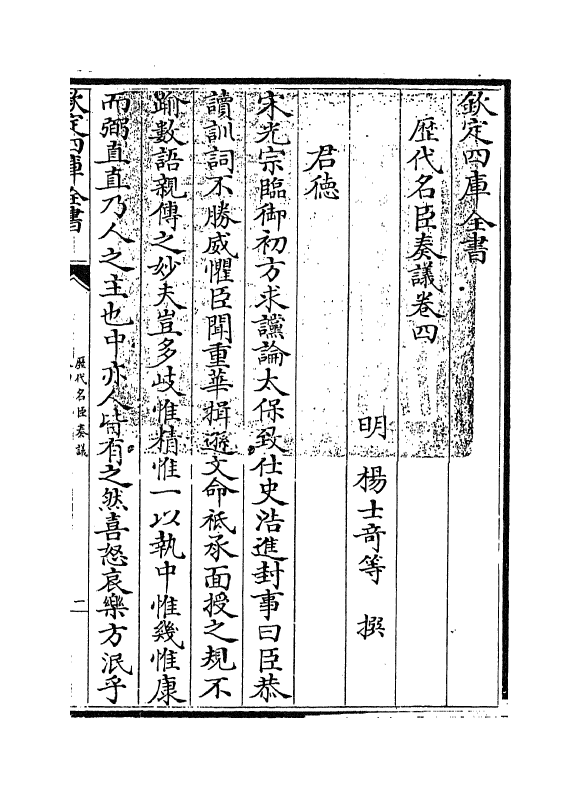 欽定四庫全書
歴代名臣奏議卷四
明　楊士奇等　撰
君德
宋光宗臨御初方求讜論太保致仕史浩進封事曰臣恭
讀訓詞不勝威懼臣聞重華揖遜文命祗承面授之規不
踰數語親傳之妙夫豈多歧惟精惟一以執中惟幾惟康
而弼直直乃人之主也中亦人皆有之然喜怒哀樂方泯乎
欽定四庫全書
歴代名臣奏議